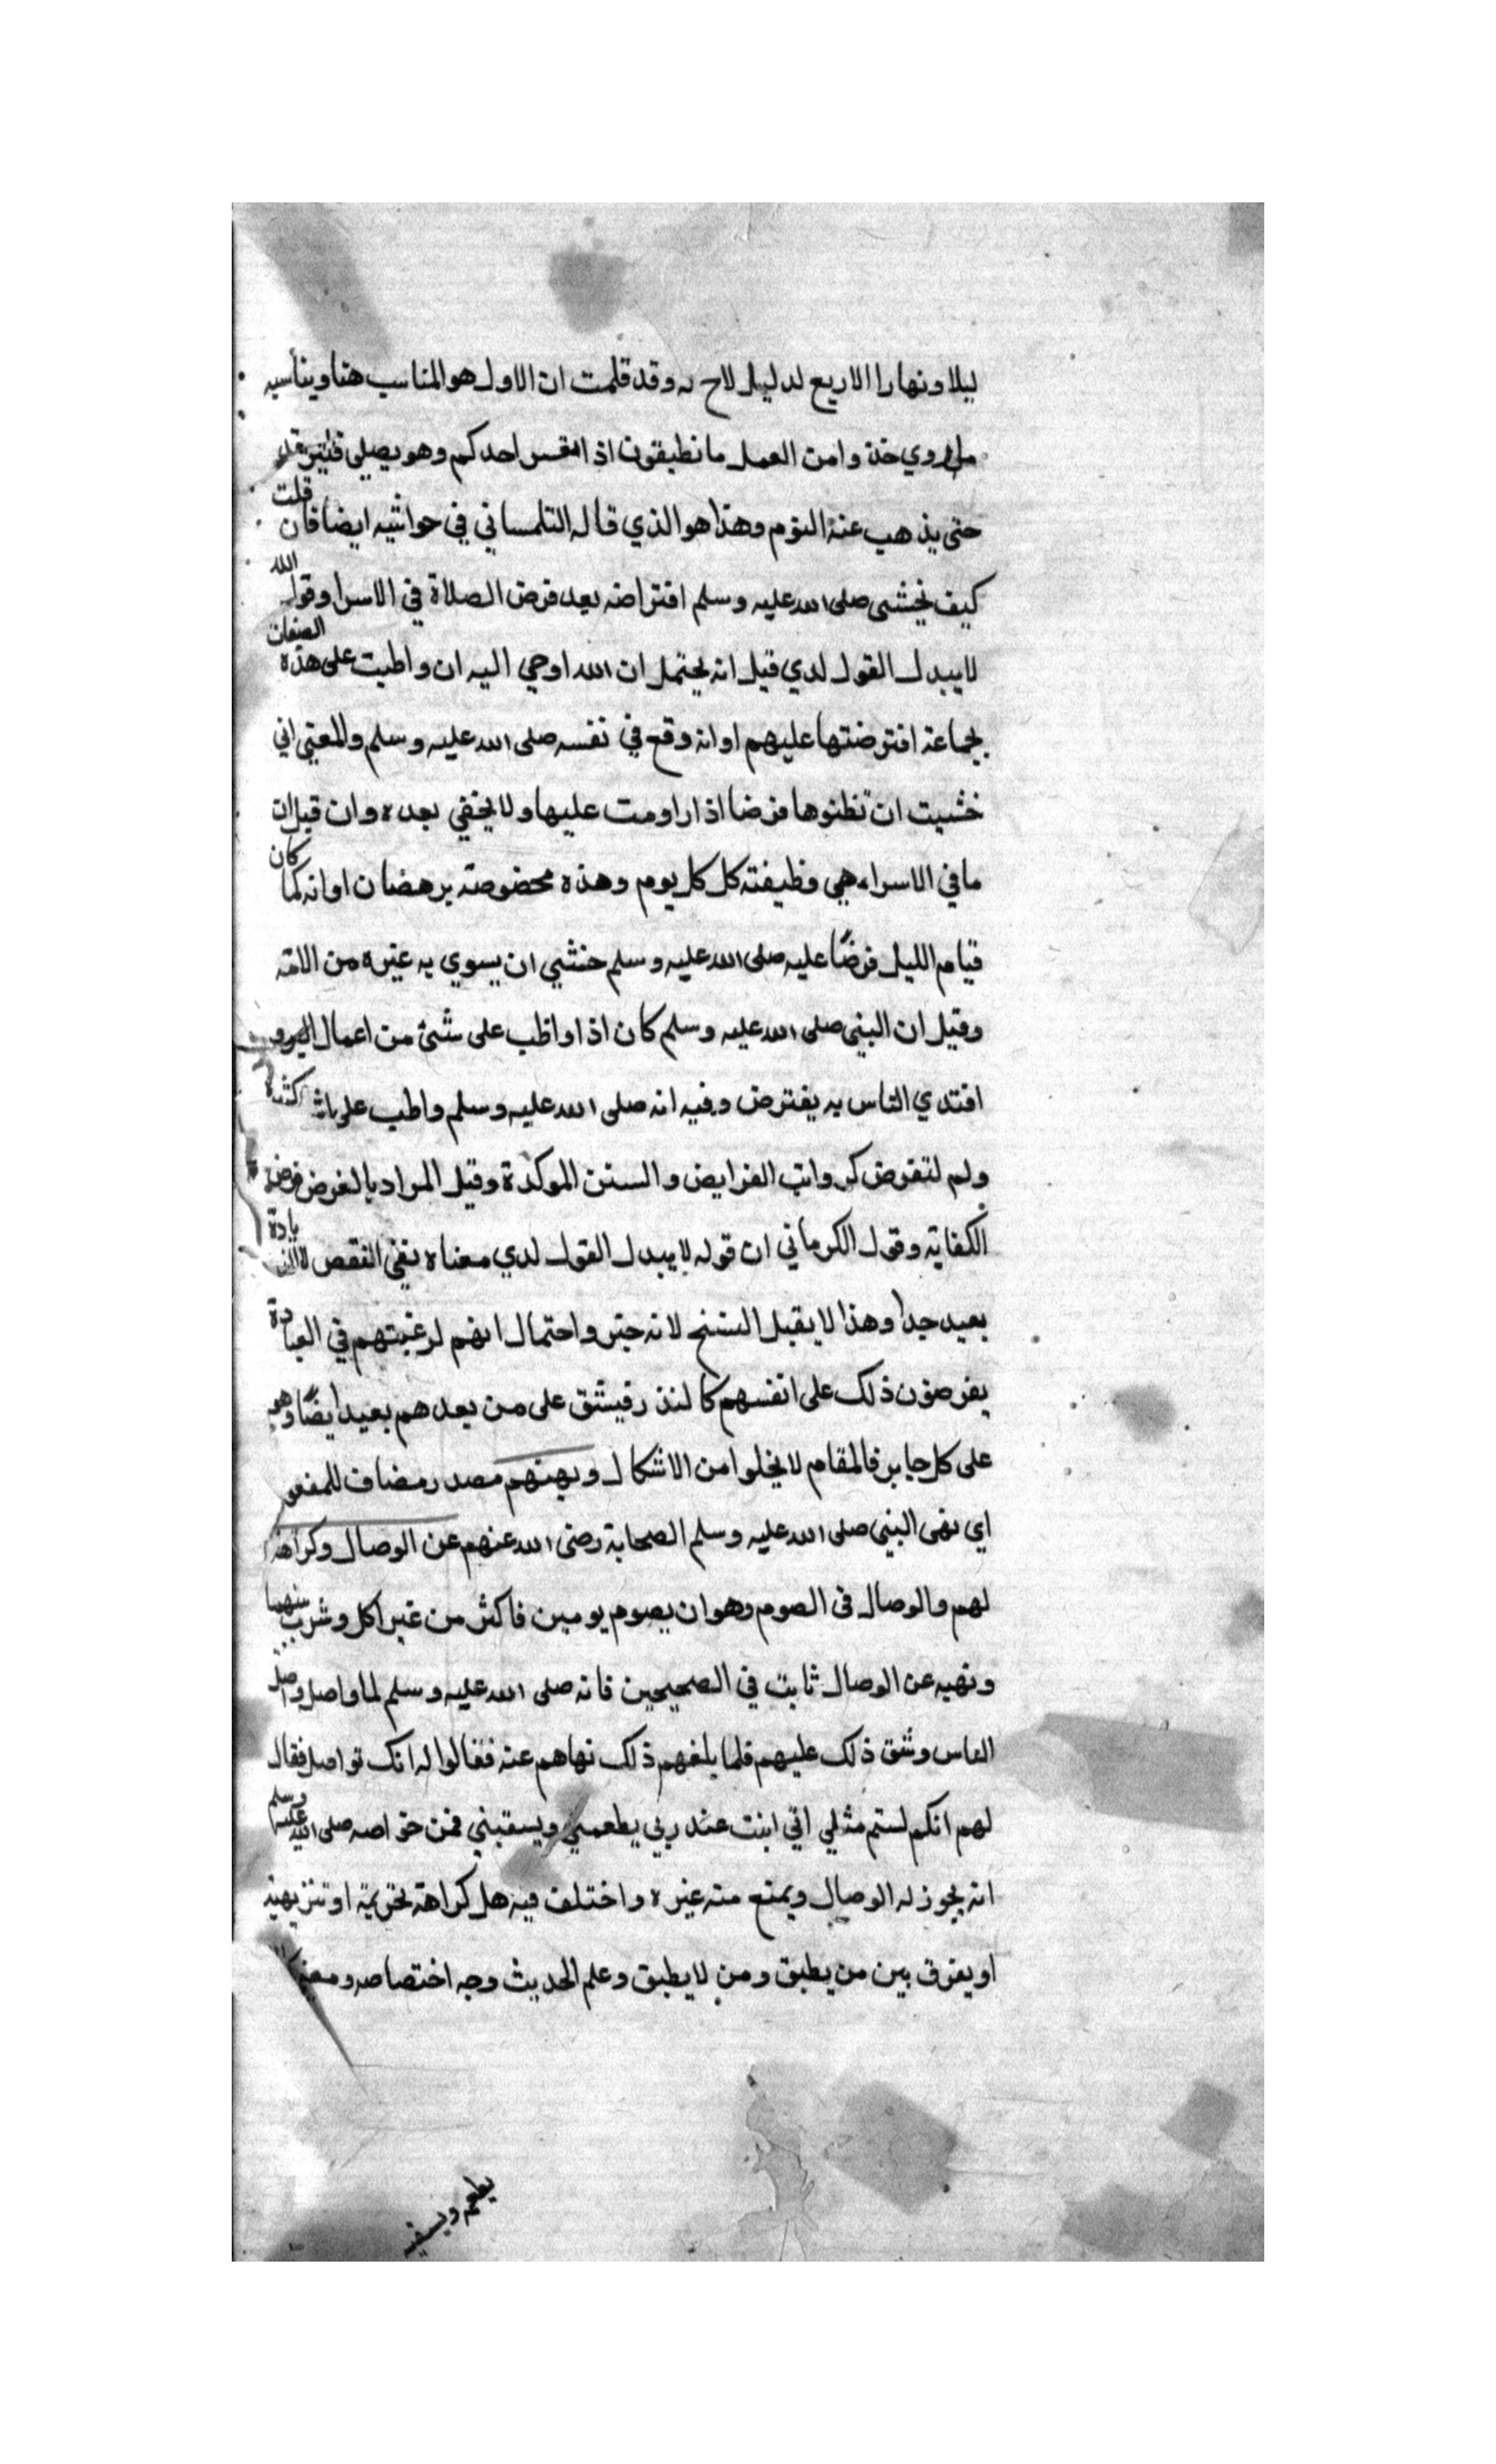 ليلا ونهارا الاربع لدليل لاح له وقد قلمت ان الاول هو المناسب هنا ويناسبه
ما روي خذوا من العمل ما تطيقون اذا نعس احدكم وهو يصلي فليرقد
حتى يذهب عنه النوم وهذا هو الذي قاله التلمساني في حواشيه ايضا فان قلت
كيف يخشى صلى الله عليه وسلم افتراضه بعد فرض الصلاة في الاسرا وقول الله
لا يبدل القول لدي قيل انه يحتمل ان الله اوحي اليه ان واظبت على هذه الصفات
بجماعة افترضتها عليهم او انه وقع في نفسه صلى الله عليه وسلم والمعنى اني
خشيت ان تظنوها فرضا اذا داومت عليها ولا يخفي بعده وان قيل ان
ما في الاسراء هي وظيفته كل كل يوم وهذه مخصوصة برمضان او انه لما كان
قيام الليل فرضًا عليه صلى الله عليه وسلم خشي ان يسوي به غيره من الامة
وقيل ان النبي صلى الله عليه وسلم كان اذا واظب على شئ من اعمال البر و
اقتدي الناس به يفترض وفيه انه صلى الله عليه وسلم واظب على اشيا كثيرة
ولم تفترض كرواتب الفرايض والسنن الموكدة وقيل المراد بالفرض فرض
الكفاية وقول الكرماني ان قوله لا يبدل القول لدي معناه نفي النقص لا الزيادة
بعيد جدا وهذا لا يقبل النسخ لانه خبر واحتمال انهم لرغبتهم في العبادة
يفرضون ذلك على انفسهم كالنذر فيشق على من بعدهم بعيد ايضًا وهو
على كل حايز فالمقام لا يخلوا من الاشكال ونهيهم مصدر مضاف للمفعول
اي نهى النبي صلى الله عليه وسلم الصحابة رضى الله عنهم عن الوصال وكراهة
لهم والوصال فى الصوم وهو ان يصوم يومين فاكثر من غير اكل وشرب بينهما
ونهيه عن الوصال ثابت في الصحيحين فانه صلى الله عليه وسلم لما واصل واصل
الناس وشق ذلك عليهم فلما بلغهم ذلك نهاهم عنه فقالوا له انك تواصل فقال
لهم انكم لستم مثلي اني ابيت عند ربي يطعمني ويسقيني فمن خواصه صلى الله عليه وسلم
انه يجوز له الوصال ويمنع منه غيره واختلف فيه هل كراهة تحريمية او تنزيهية
او يفرق بين من يطيق ومن لا يطيق وعلم الحديث وجه اختصاصه ومعنى
يطعم ويسقيه